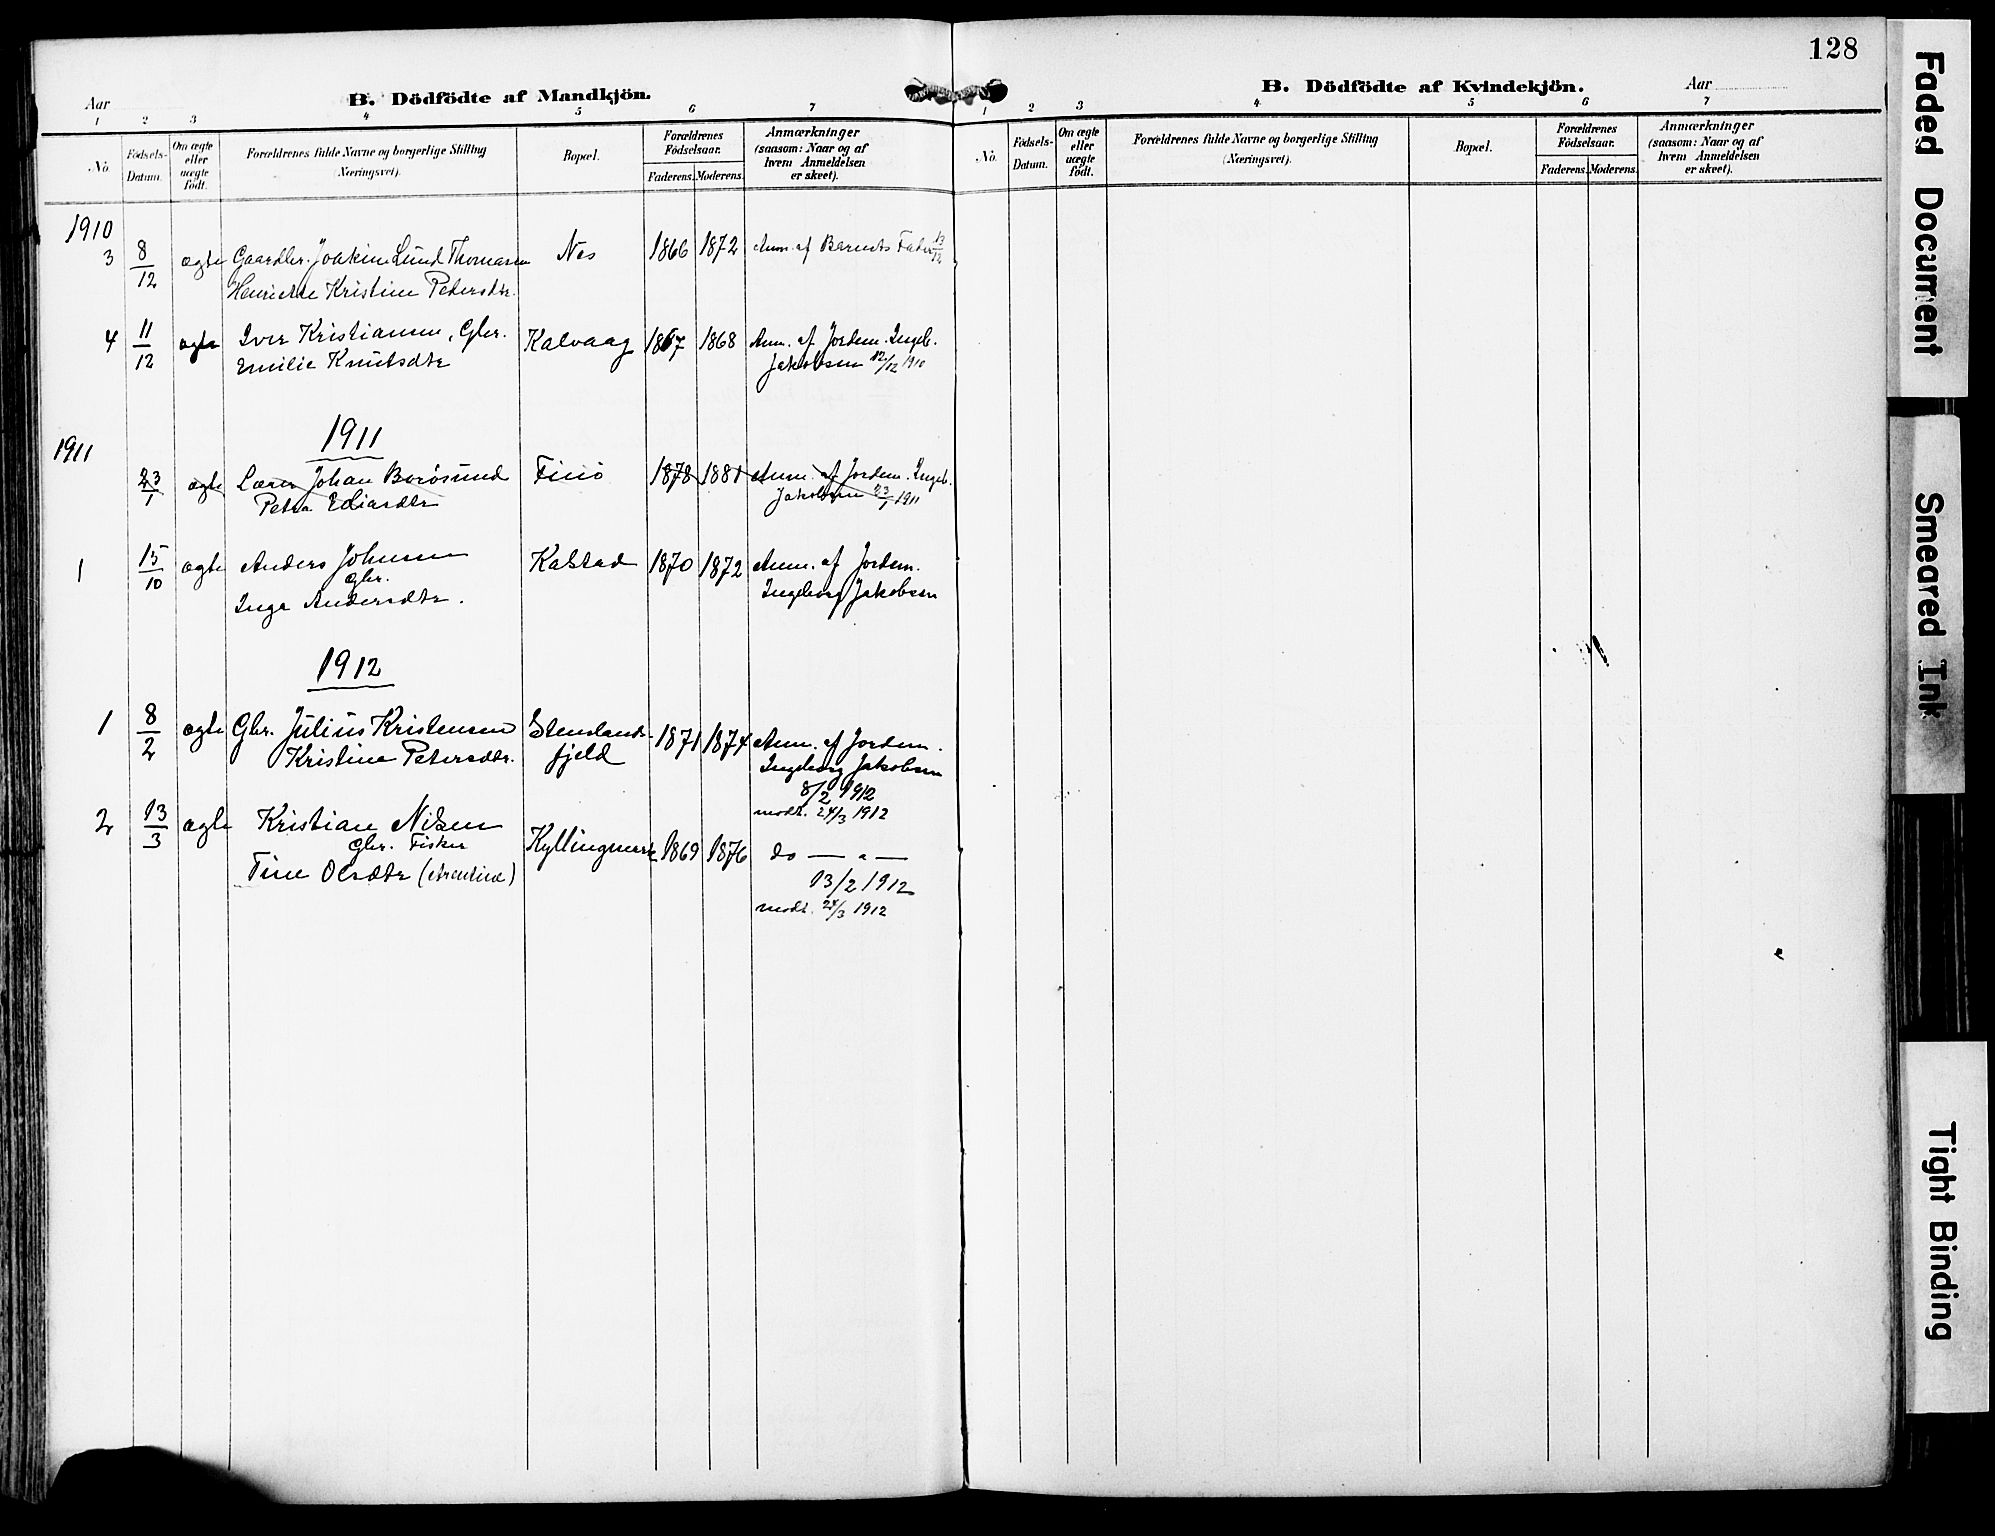 128
Aar
B. Dödfödte af Mandkjön.
1 2 3 4 5 6 7
No.
Födsels-Datum.
Om ægte eller uægte födt.
Forældrenes fulde Navne og borgerlige Stilling
(Næringsvei).
Bopæl.
Forældrenes Födselsaar.
Faderens. Moderens.
Anmærkninger
(saasom: Naar og af
hvem Anmeldelsen
er skeet).
1910
3 8/12 ægte Gaardbr. Joakim Lund Thomasen Nes 1866 1872 Anm. af Barnets Fader 13/12
Henriette Kristine Petersdtr.
4 11/12 ægte Iver Kristiansen, Gbr. Kalvaag 1867 1868 Anm. af Jordem. Ingeb.
Emilie Knutsdtr Jakobsen 12/12 1910
1911
1911
23/1 ægte Lærer Johan Borøsund 1878 1881 Anm. af Jordem. Ingeb.
Petra Jakobsen 23/1 1911
1 15/10 ægte Anders Johnsen Kalstad 1870 1872 Anm. af Jordem.
Gbr.
Inga Andersdtr. Ingeborg Jakobsen
1912
1 8/2 ægte Gbr. Julius Kristensen Stenslands- 1871 1874 Anm. af Jordem.
Kristine Petersdtr. fjeld Ingeborg Jakobsen
8/2 1912
modt. 24/3 1912
2 13/3 ægte Kristian Nilsen
Gbr. Fisker Kyllingmark 1869 1876 do — " —
Tine Olsdtr
13/2 1912
modt. 24/3 1912
B. Dödfödte af Kvindekjön.
Aar
1 2 3 4 5 6 7
No.
Födsels-Datum.
Om ægte eller uægte födt.
Forældrenes fulde Navne og borgerlige Stilling
(Næringsvei).
Bopæl.
Forældrenes Födselsaar.
Faderens. Moderens.
Anmærkninger
(saasom: Naar og af
hvem Anmeldelsen
er skeet).
Faded Document
Smeared Ink
Tight Binding